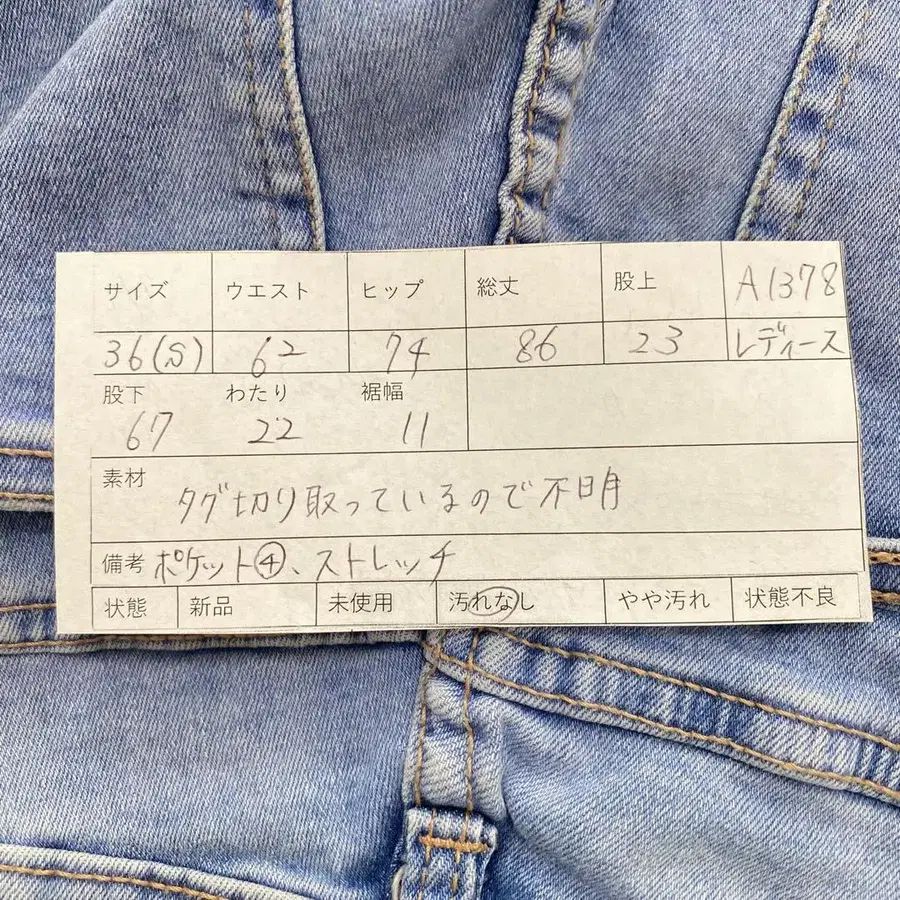 サイズ ウエスト ヒップ 総丈 股上 A1378
36(S) 62 74 86 23 レディース
股下 わたり 裾幅
67 22 11
素材 タグ切り取っているので不明
備考 ポケット④、ストレッチ
状態 新品 未使用 汚れなし やや汚れ 状態不良